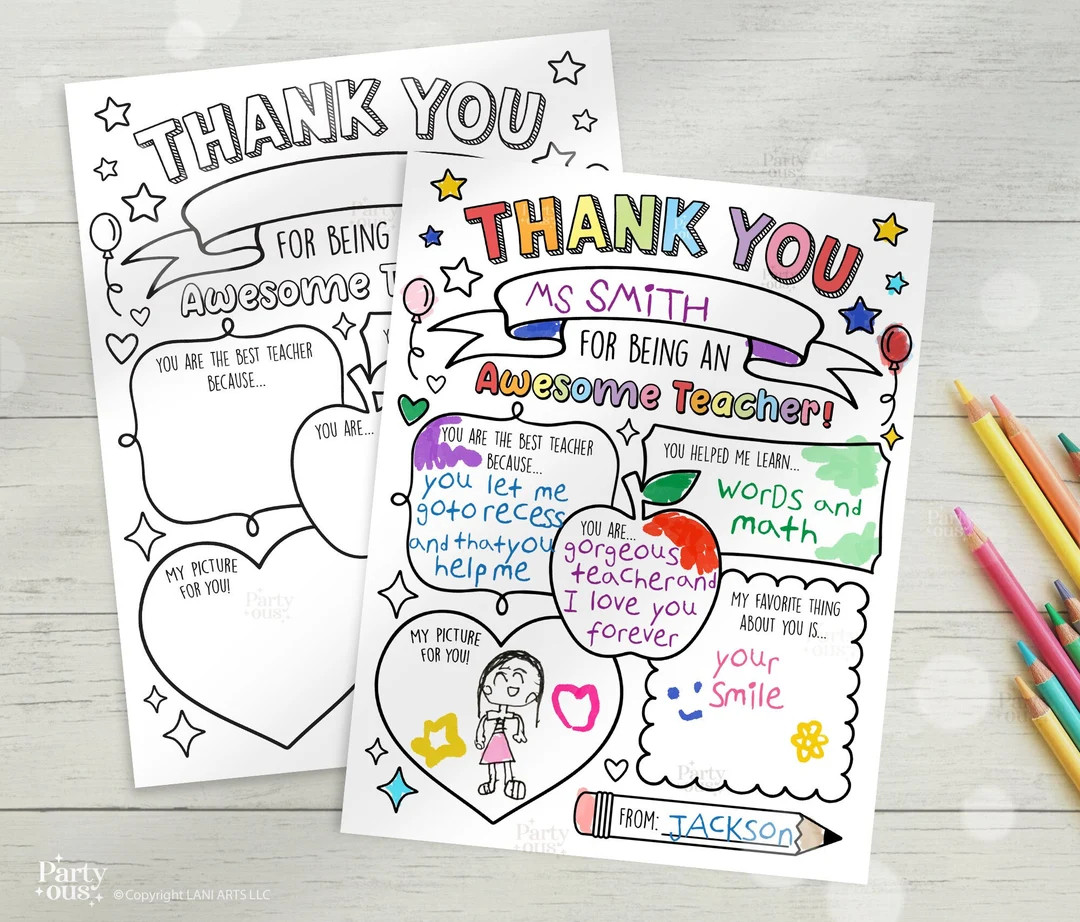 THANK YOU
FOR BEING
Awesome T
YOU ARE THE BEST TEACHER
BECAUSE...
YOU ARE...
MY PICTURE
FOR YOU!
THANK YOU
MS SMiTH
FOR BEING AN
Awesome Teacher!
YOU ARE THE BEST TEACHER
BECAUSE...
you let me
goto recess
and that you
help me
YOU HELPED ME LEARN...
worDs and
math
YOU ARE...
gorgeous
teacher and
I love you
forever
MY PICTURE
FOR YOU!
MY FAVORITE THING
ABOUT YOU IS...
your
Smile
FROM: JACKSon
Party
ous
Party
ous
Party
ous
Party
ous
Party
ous
©Copyright LANI ARTS LLC